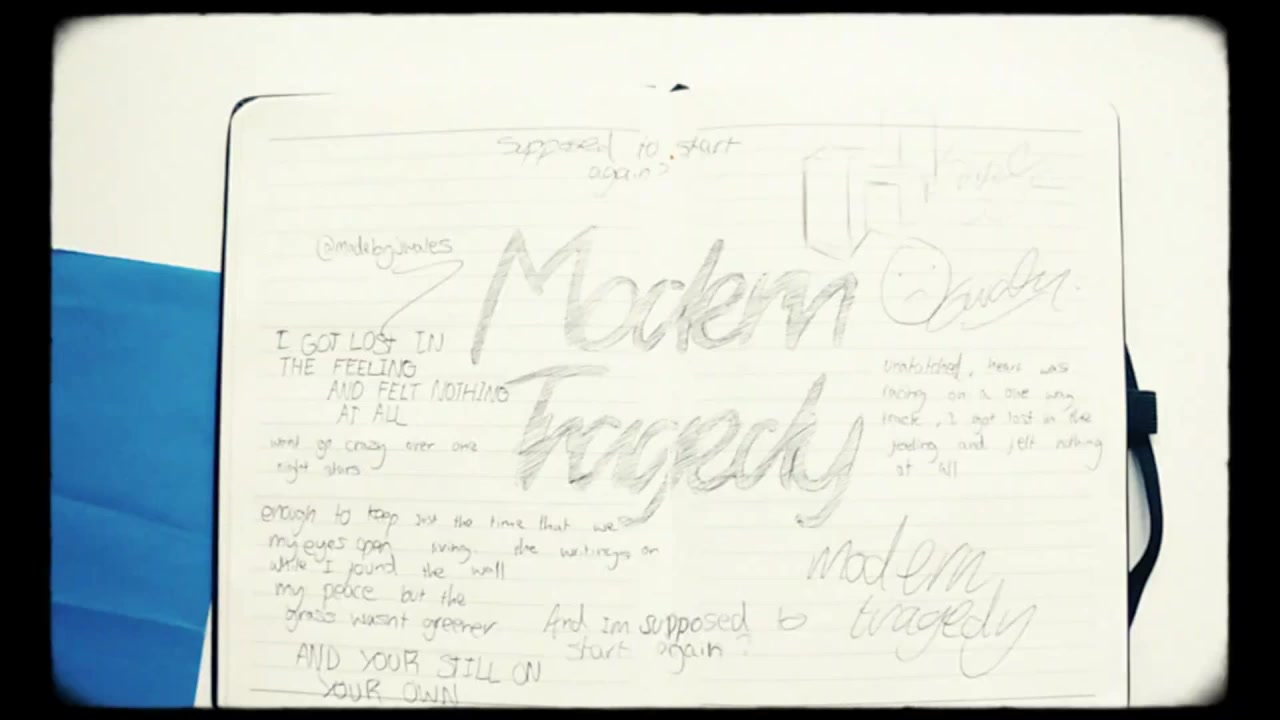 supposed to start
again?
Modern
Tragedy
I GOT LOST IN
THE FEELING
AND FELT NOTHING
AT ALL
wont go crazy over one
night stars
enough to keep
my eyes open
while I found
my peace but the
grass wasnt greener
just the time that we
living. the writings on
the wall
AND YOUR STILL ON
YOUR OWN
heart was
racing on a one way
track, I got lost in the
feeling and felt nothing
at all
modern
tragedy
And im supposed to
start again?